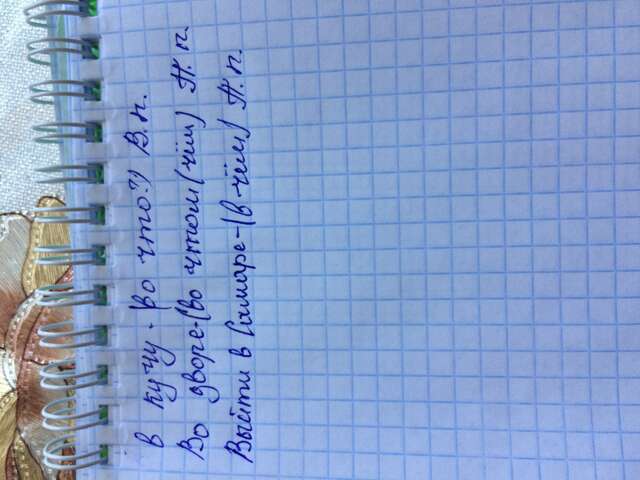 в кучу - (во что?) В. п.
Во дворе - (во чтом (чём) П. п.
Выйти в Самаре - (в чём) П. п.